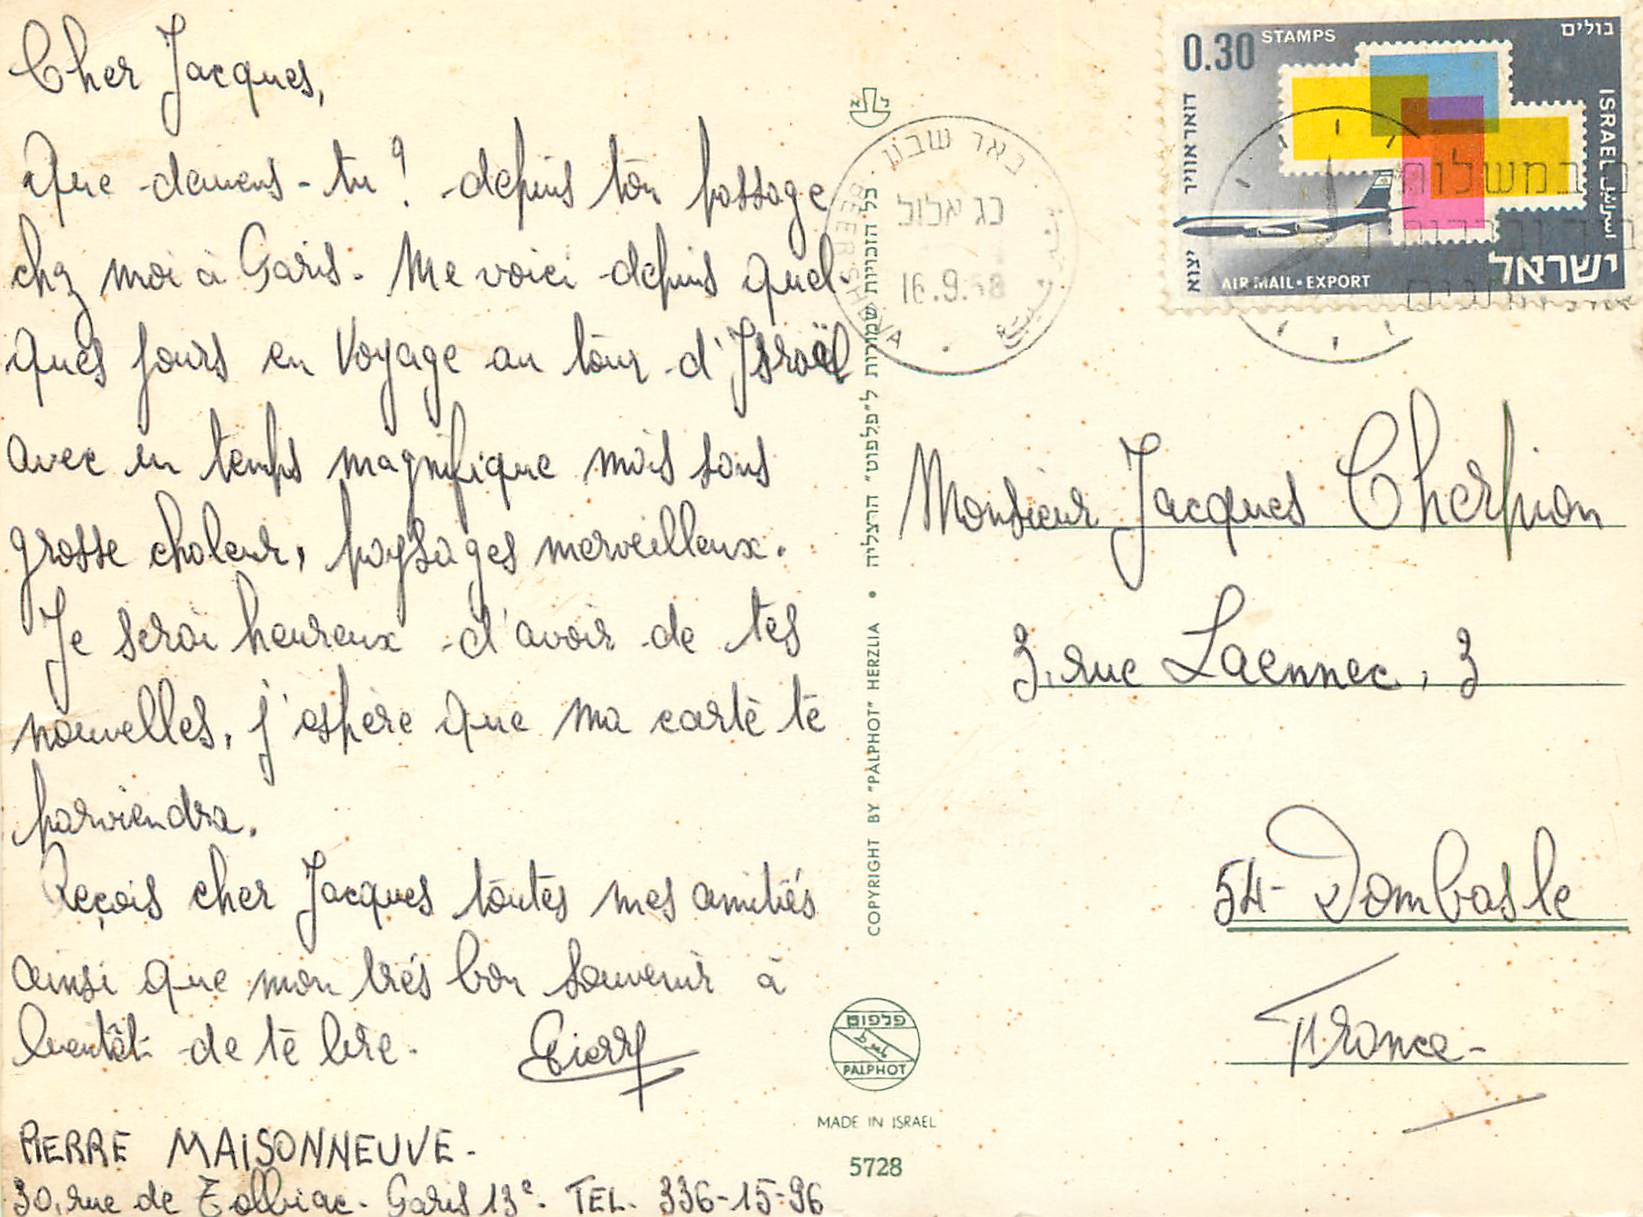 Cher Jacques,
Que deviens-tu ? depuis ton passage
chez moi à Paris. Me voici depuis quel-
ques jours en Voyage au tour d'Israël
avec un temps magnifique mois sous
grosse chaleur, paysages merveilleux.
Je serai heureux d'avoir de tes
nouvelles, j'espère que ma carte te
parviendra.
Reçois cher Jacques toutes mes amitiés
ainsi que mon très bon souvenir à
bientôt de te lire.
Pierre
PIERRE MAISONNEUVE.
30, rue de Tolbiac. Paris 13e. TEL. 336-15-96
כל הזכויות שמורות ל"פלפוט" הרצליה
COPYRIGHT BY "PALPHOT" HERZLIA
פלפוט
PALPHOT
MADE IN ISRAEL
5728
באר שבע
BEER SHEVA
כג אלול
16.9.68
0.30 STAMPS
בולים
ISRAEL اسرائيل
דואר אויר
יצוא
AIR MAIL • EXPORT
ישראל
במשלוח
Monsieur Jacques Cherpion
3, rue Laennec, 3
54- Dombasle
France-